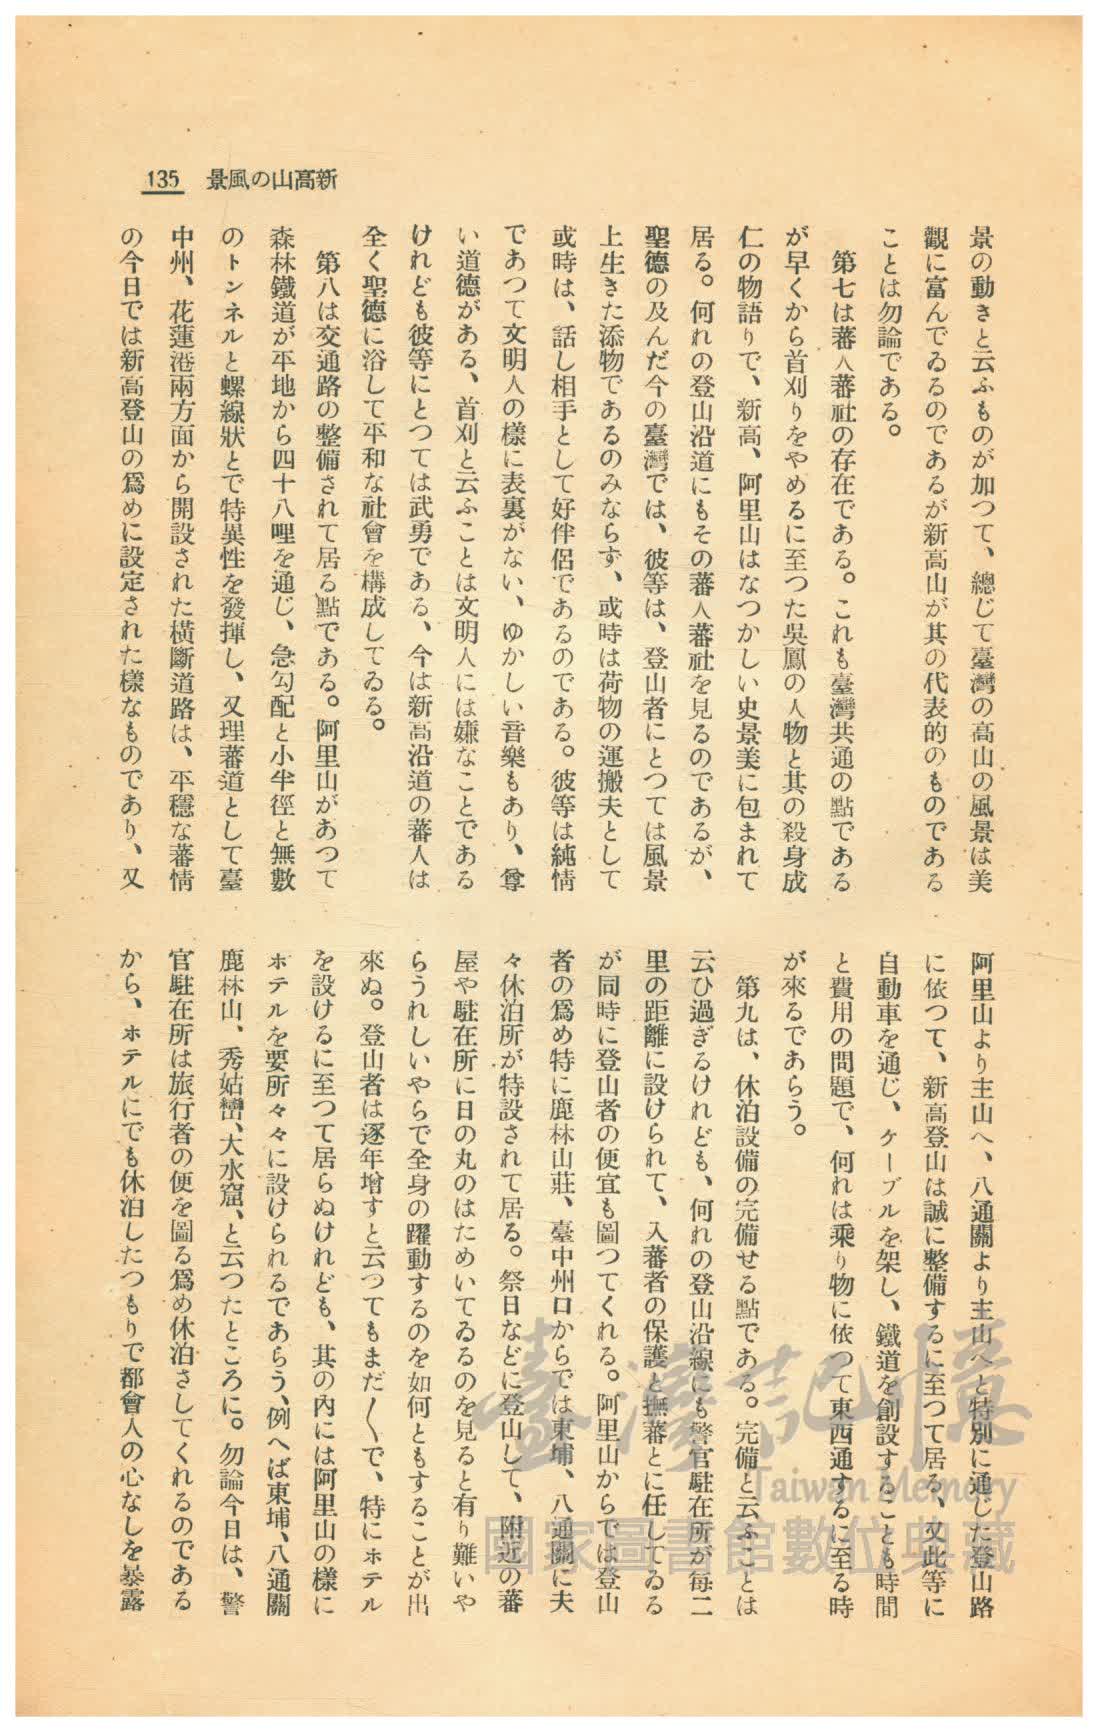 新高山の風景 135
景の動きと云ふものが加つて、總じて臺灣の高山の風景は美
觀に富んでゐるのであるが新高山が其の代表的のものである
ことは勿論である。
第七は蕃人蕃社の存在である。これも臺灣共通の點である
が早くから首刈りをやめるに至つた吳鳳の人物と其の殺身成
仁の物語りで、新高、阿里山はなつかしい史景美に包まれて
居る。何れの登山沿道にもその蕃人蕃社を見るのであるが、
聖德の及んだ今の臺灣では、彼等は、登山者にとつては風景
上生きた添物であるのみならず、或時は荷物の運搬夫として
或時は、話し相手として好伴侶であるのである。彼等は純情
であつて文明人の樣に表裏がない、ゆかしい音樂もあり、尊
い道德がある、首刈と云ふことは文明人には嫌なことである
けれども彼等にとつては武勇である、今は新高沿道の蕃人は
全く聖德に浴して平和な社會を構成してゐる。
第八は交通路の整備されて居る點である。阿里山があつて
森林鐵道が平地から四十八哩を通じ、急勾配と小半徑と無數
のトンネルと螺線狀とで特異性を發揮し、又理蕃道として臺
中州、花蓮港兩方面から開設された橫斷道路は、平穩な蕃情
の今日では新高登山の爲めに設定された樣なものであり、又
阿里山より主山へ、八通關より主山へと特別に通じた登山路
に依つて、新高登山は誠に整備するに至つて居る、又此等に
自動車を通じ、ケーブルを架し、鐵道を創設することも時間
と費用の問題で、何れは乘り物に依つて東西通するに至る時
が來るであらう。
第九は、休泊設備の完備せる點である。完備と云ふことは
云ひ過ぎるけれども、何れの登山沿線にも警官駐在所が每二
里の距離に設けられて、入蕃者の保護と撫蕃とに任してゐる
が同時に登山者の便宜も圖つてくれる。阿里山からでは登山
者の爲め特に鹿林山莊、臺中州口からでは東埔、八通關に夫
々休泊所が特設されて居る。祭日などに登山して、附近の蕃
屋や駐在所に日の丸のはためいてゐるのを見ると有り難いや
らうれしいやらで全身の躍動するのを如何ともすることが出
來ぬ。登山者は逐年增すと云つてもまだ〳〵で、特にホテル
を設けるに至つて居らぬけれども、其の內には阿里山の樣に
ホテルを要所々々に設けられるであらう、例へば東埔、八通關
鹿林山、秀姑巒、大水窟、と云つたところに。勿論今日は、警
官駐在所は旅行者の便を圖る爲め休泊さしてくれるのである
から、ホテルにでも休泊したつもりで都會人の心なしを暴露
臺灣記憶
Taiwan Memory
國家圖書館數位典藏